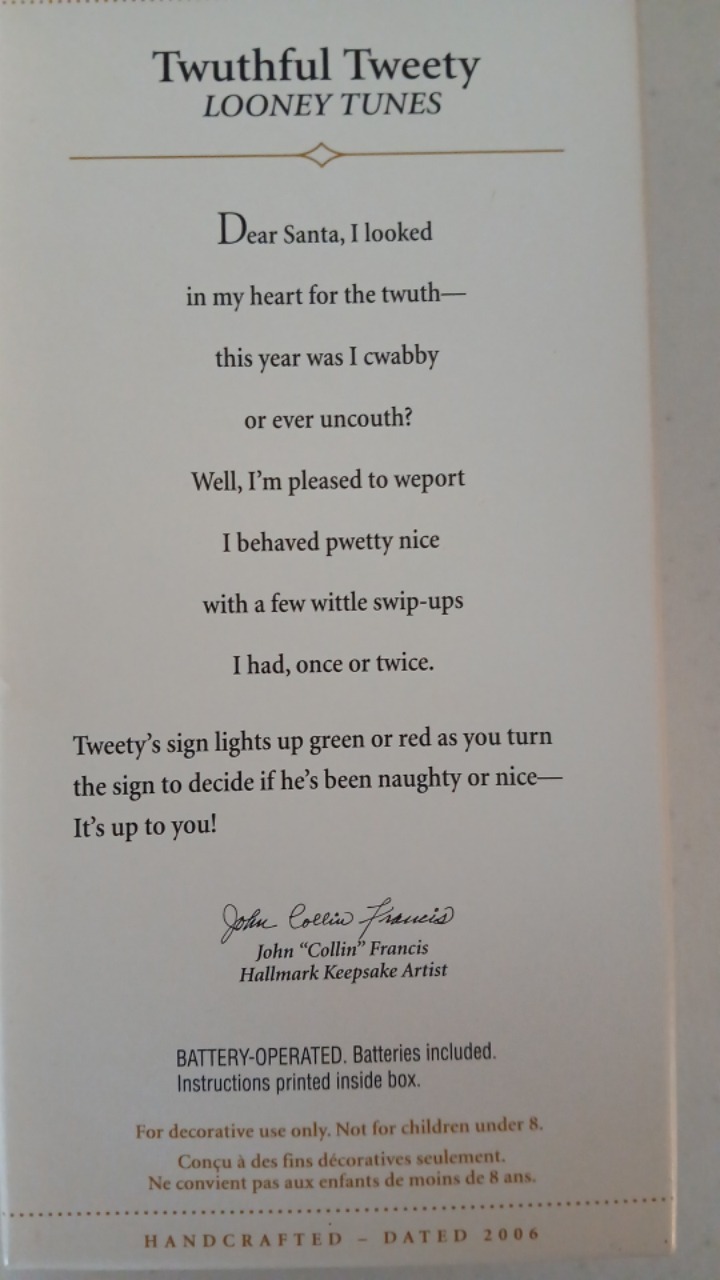 Twuthful Tweety
LOONEY TUNES
Dear Santa, I looked
in my heart for the twuth—
this year was I cwabby
or ever uncouth?
Well, I'm pleased to weport
I behaved pwetty nice
with a few wittle swip-ups
I had, once or twice.
Tweety's sign lights up green or red as you turn
the sign to decide if he's been naughty or nice—
It's up to you!
John Collin Francis
John "Collin" Francis
Hallmark Keepsake Artist
BATTERY-OPERATED. Batteries included.
Instructions printed inside box.
For decorative use only. Not for children under 8.
Conçu à des fins décoratives seulement.
Ne convient pas aux enfants de moins de 8 ans.
HANDCRAFTED – DATED 2006